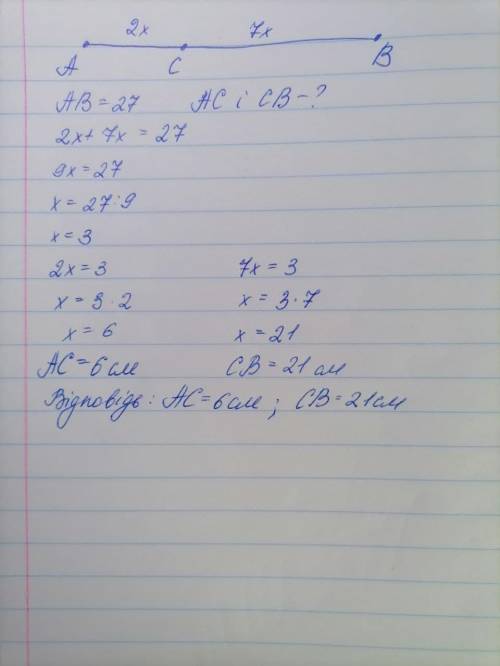 2x 7x
A C B
AB = 27 AC і CB - ?
2x + 7x = 27
9x = 27
x = 27 : 9
x = 3
2x = 3 7x = 3
x = 3 · 2 x = 3 · 7
x = 6 x = 21
AC = 6 см CB = 21 см
Відповідь : AC = 6 см ; CB = 21 см